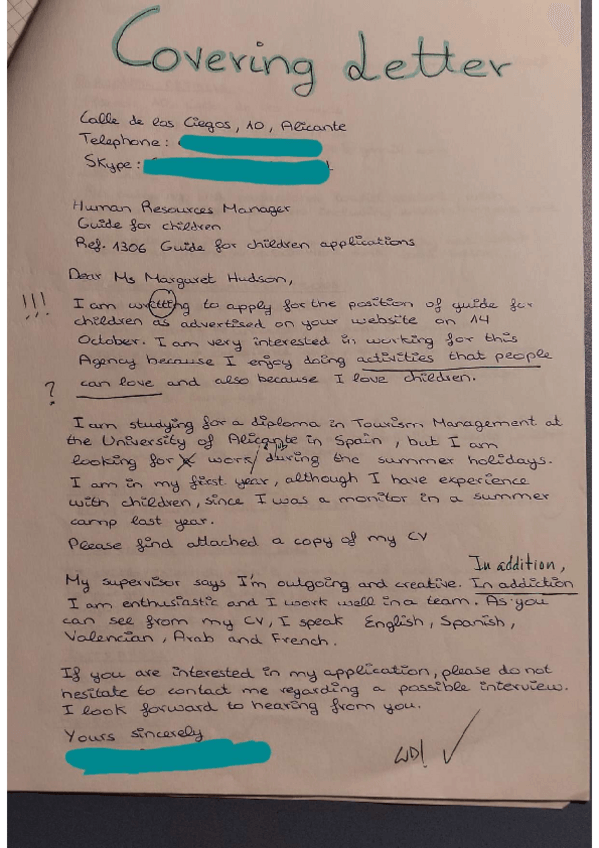 Covering Letter
Calle de las Ciegos, 10, Alicante
Telephone:
Skype:
Human Resources Manager
Guide for children
Ref. 1306 Guide for children applications
Dear Ms Margaret Hudson,
!!! I am writting to apply for the position of guide for
children as advertised on your website on 14
October. I am very interested in working for this
Agency because I enjoy doing activities that people
? can love and also because I love children.
I am studying for a diploma in Tourism Management at
the University of Alicante in Spain, but I am
looking for work/ during the summer holidays.
I am in my first year, although I have experience
with children, since I was a monitor in a summer
camp last year.
Please find attached a copy of my CV
In addition,
My supervisor says I'm outgoing and creative. In addiction
I am enthusiastic and I work well in a team. As you
can see from my CV, I speak English, Spanish,
Valencian, Arab and French.
If you are interested in my application, please do not
hesitate to contact me regarding a possible interview.
I look forward to hearing from you.
Yours sincerely
WD!